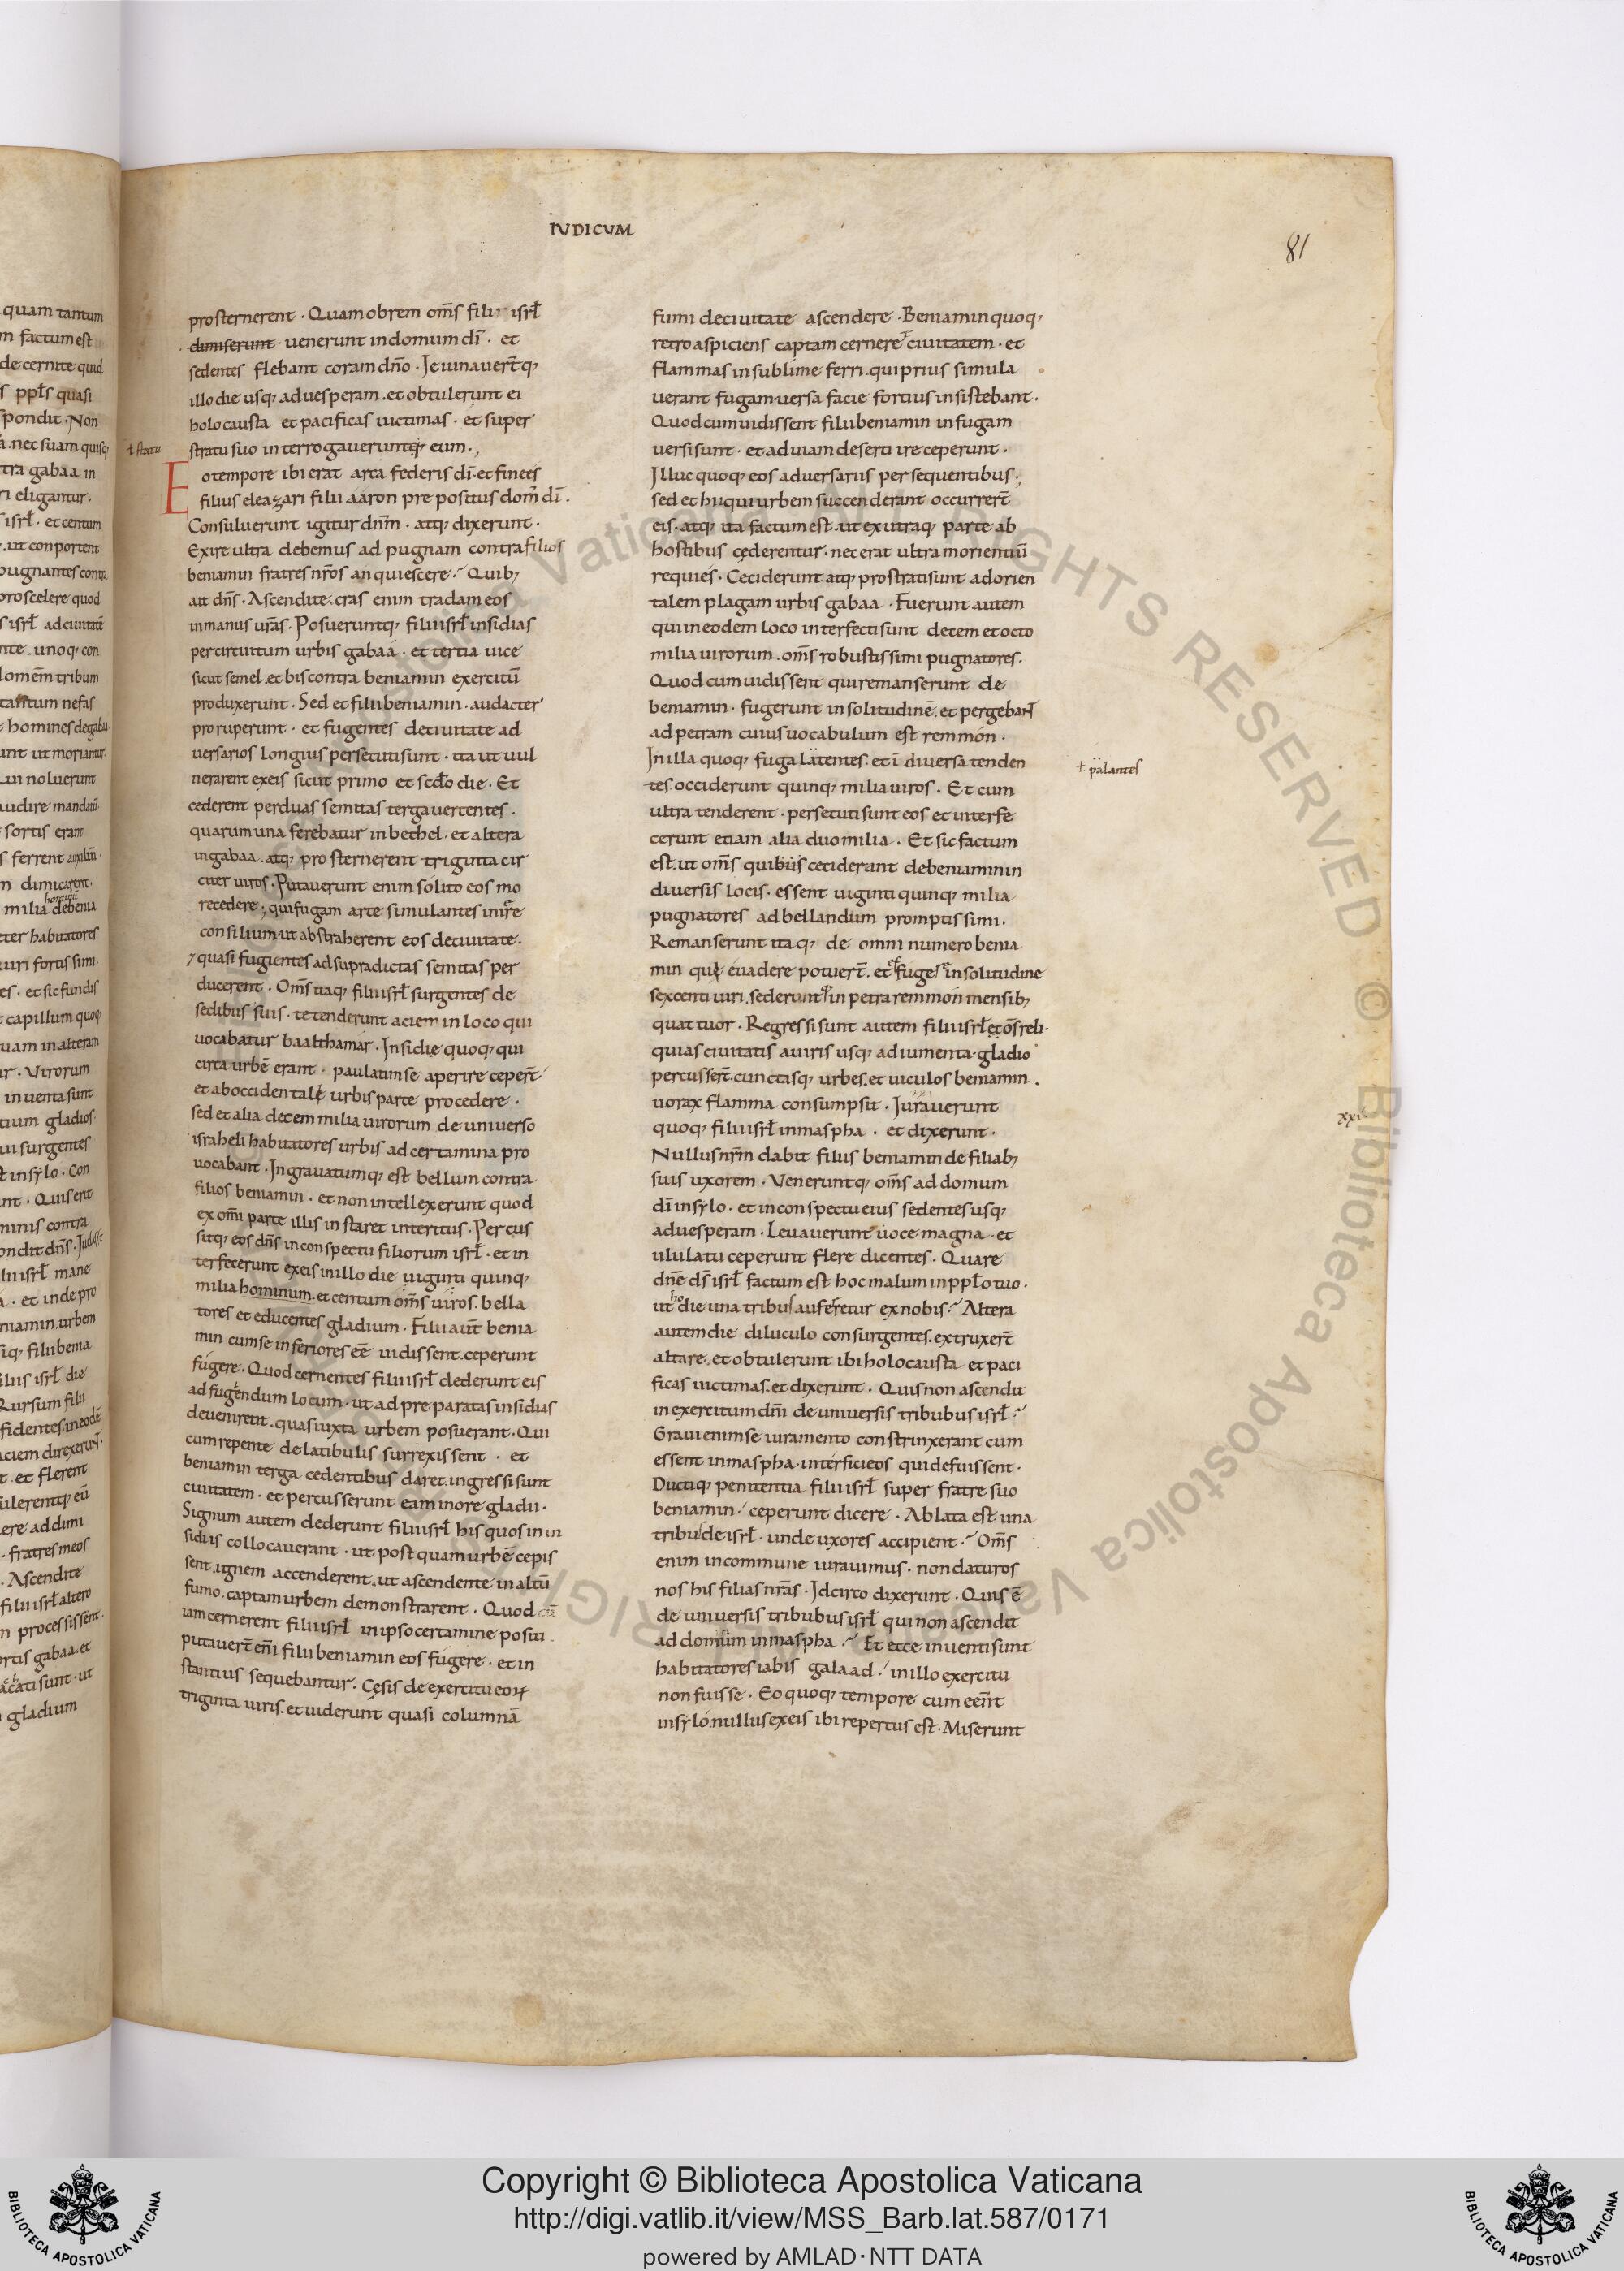 IUDICUM
81
prosternerent . Quam obrem om̄s filii isrł
dimiserunt . uenerunt in domum dī . et
sedentes flebant coram dn̄o . Ieiunauert̄q;
illo die usq; ad uesperam . et obtulerunt ei
holocausta et pacificas uictimas . et super
ł statu
stratu suo interrogaueruntq; eum .,
Eo tempore ibi erat arca federis dī . et finees
filius eleazari filii aaron pre positus dom̄ dī .
Consuluerunt igitur dn̄m . atq; dixerunt .
Exire ultra debemus ad pugnam contra filios
beniamin fratres nr̄os an quiescere ? Quib;
ait dn̄s . Ascendite . cras enim tradam eos
in manus ur̄as . Posueruntq; filii isrł insidias
per circuitum urbis gabaa . et tertia uice
sicut semel . et bis contra beniamin exercitū
produxerunt . Sed et filii beniamin . audacter
proruperunt . et fugentes de ciuitate ad
uersarios longius persecuti sunt . ita ut uul
nerarent ex eis sicut primo et scd̄o die . Et
cederent per duas semitas terga uertentes .
quarum una ferebatur in bethel . et altera
in gabaa . atq; prosternerent triginta cir
citer uiros . Putauerunt enim solito eos mo
re cedere ; qui fugam arte simulantes inire
consilium . ut abstraherent eos de ciuitate .
⁊ quasi fugientes ad supradictas semitas per
ducerent . Om̄s itaq; filii isrł surgentes de
sedibus suis . tetenderunt aciem in loco qui
uocabatur baalthamar . Insidię quoq; qui
circa urbē erant . paulatim se aperire cepert̄ .
et ab occidentalę urbis parte procedere .
sed et alia decem milia uirorum de uniuerso
israheli habitatores urbis ad certamina pro
uocabant . Ingrauatumq; est bellum contra
filios beniamin . et non intellexerunt quod
ex om̄i parte illis instaret interitus . Percus
sitq; eos dn̄s in conspectu filiorum isrł . et in
terfecerunt ex eis in illo die uiginti quinq;
milia hominum . et centum om̄s uiros . bella
tores et educentes gladium . Filii aut̄ benia
min cum se inferiores eē uidissent . ceperunt
fugere . Quod cernentes filii isrł dederunt eis
ad fugendum locum . ut ad pre paratas insidias
deuenirent . quas iuxta urbem posuerant . Qui
cum repente de latibulis surrexissent . et
beniamin terga cedentibus daret . ingressi sunt
ciuitatem . et percusserunt eam in ore gladii .
Signum autem dederunt filii isrł his quos in in
sidiis collocauerant . ut post quam urbē cepis
sent . ignem accenderent . ut ascendente in altū
fumo . captam urbem demonstrarent . Quod cū
iam cernerent filii isrł in ipso certamine positi .
putauert̄ em̄ filii beniamin eos fugere . et in
stantius sequebantur . Cęsis de exercitu eoꝝ
triginta uiris . et uiderunt quasi columnā
fumi de ciuitate ascendere . Beniamin quoq;
retro aspiciens captam cernere ciuitatem . et
flammas in sublime ferri . qui prius simula
uerant fugam . uersa facie fortius insistebant .
Quod cum uidissent filii beniamin in fugam
uersi sunt . et ad uiam deserti ire ceperunt .
Illuc quoq; eos aduersariis persequentibus .,
sed et hii qui urbem succenderant occurrert̄
eis . atq; ita factum est . ut ex utraq; parte ab
hostibus cęderentur . nec erat ultra morientiū
requies . Ceciderunt atq; prostrati sunt ad orien
talem plagam urbis gabaa . Fuerunt autem
qui in eodem loco interfecti sunt decem et octo
milia uirorum . om̄s robustissimi pugnatores .
Quod cum uidissent qui remanserunt de
beniamin . fugerunt in solitudinē . et pergebant
ad petram cuius uocabulum est remmon .
In illa quoq; fuga latentes . et ī diuersa tenden
ł palantes
tes . occiderunt quinq; milia uiros . Et cum
ultra tenderent . persecuti sunt eos et interfe
cerunt etiam alia duo milia . Et sic factum
est . ut om̄s quibus ceciderant de beniaminin
diuersis locis . essent uiginti quinq; milia
pugnatores ad bellandum promptissimi .
Remanserunt itaq; de omni numero benia
min quę euadere potuert̄ . et fuger̄ in solitudine
sexcenti uiri . sederunt in petra remmon mensib;
quattuor . Regressi sunt autem filii isrł et om̄s reli
quias ciuitatis a uiris usq; ad iumenta . gladio
percussert̄ . cunctasq; urbes . et uiculos beniamin .
uorax flamma consumpsit . Iurauerunt
xxi
quoq; filii isrł in maspha . et dixerunt .
Nullus nr̄m dabit filiis beniamin de filiab;
suis uxorem . Ueneruntq; om̄s ad domum
dī in sylo . et in conspectu eius sedentes usq;
ad uesperam . Leuauerunt uoce magna . et
ululatu ceperunt flere dicentes . Quare
dn̄e dς̄ isrł factum est hoc malum in ppło tuo .
ut hodie una tribus auferetur ex nobis ? Altera
autem die diluculo consurgentes . extruxert̄
altare . et obtulerunt ibi holocausta et paci
ficas uictimas . et dixerunt . Quis non ascendit
in exercitum dn̄i de uniuersis tribubus isrł ?
Graui enim se iuramento constrinxerant cum
essent in maspha . interfici eos qui defuissent .
Ductiq; penitentia filii isrł super fratre suo
beniamin . ceperunt dicere . Ablata est una
tribu de isrł . unde uxores accipient ? Om̄s
enim in commune iurauimus . non daturos
nos his filias nr̄as . Idcirco dixerunt . Quis ē
de uniuersis tribubus isrł qui non ascendit
ad domūm in maspha ? Et ecce inuenti sunt
habitatores iabis galaad . in illo exercitu
non fuisse . Eo quoq; tempore cum een̄t
in sylo . nullus ex eis ibi repertus est . Miserunt
Copyright © Biblioteca Apostolica Vaticana
http://digi.vatlib.it/view/MSS_Barb.lat.587/0171
powered by AMLAD·NTT DATA
BIBLIOTECA APOSTOLICA VATICANA
BIBLIOTECA APOSTOLICA VATICANA